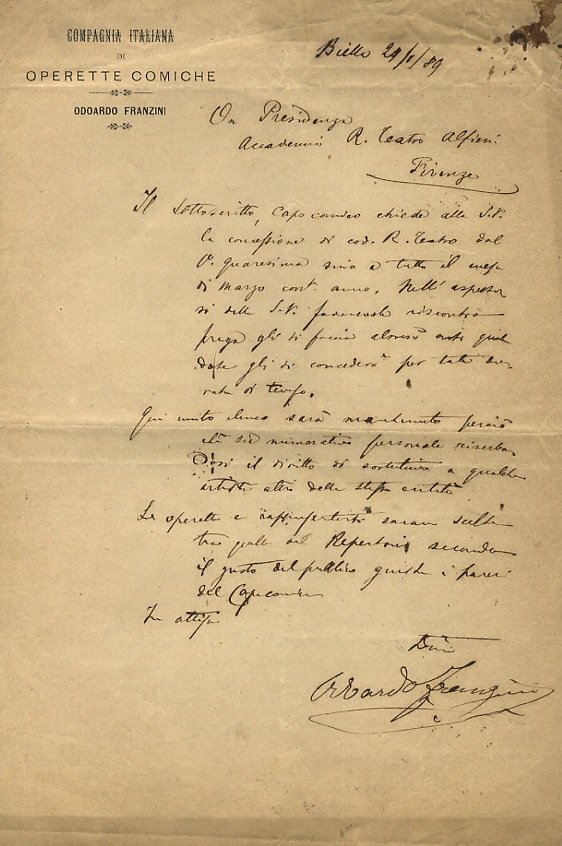 COMPAGNIA ITALIANA
DI
OPERETTE COMICHE
ODOARDO FRANZINI
Biella 24/1/89
On Presidenza
Accademia R. Teatro Alfieri
Firenze
Il Sottoscritto, Capocomico chiede alla S.V.
la concessione di cod. R. Teatro dal
1ª quaresima sino a tutto il mese
di Marzo cort. anno. Nell' aspettar
si dalla S.V. favorevole riscontro
prega gli di
gli si per tale du
rata di tempo.
Qui unito elenco sarà mantenuto perciò
personale riserban
dosi il diritto di sostituire a qualche
artista altri della stessa entità
Le operette a rappresentarsi saran scelte
tra quelle del Repertorio secondo
il gusto del pubblico i pareri
del Capocomico
In attesa
Odoardo Franzini